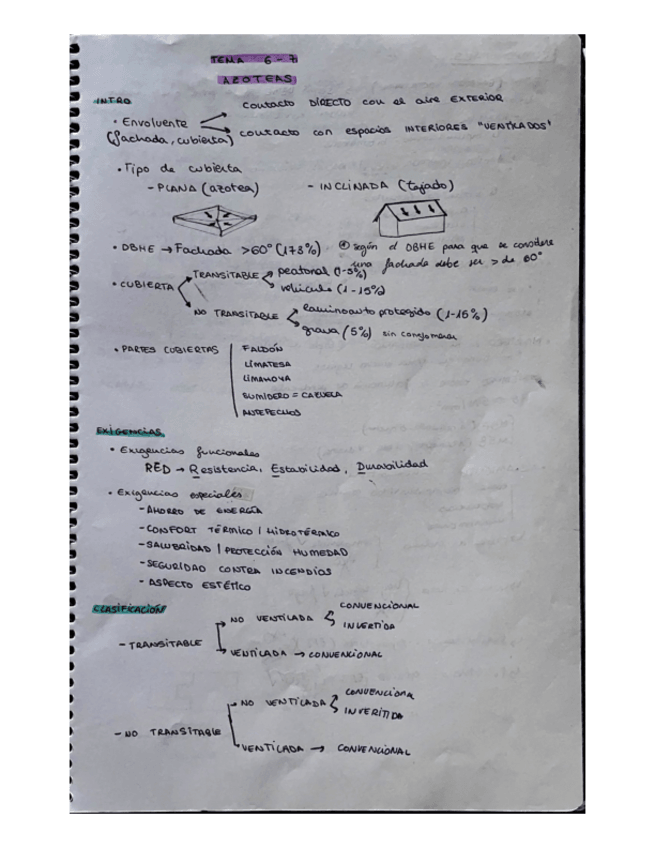 TEMA 6-7
AZOTEAS
INTRO
• Envolvente (fachada, cubierta)
contacto DIRECTO con el aire EXTERIOR
contacto con espacios INTERIORES "VENTILADOS"
• Tipo de cubierta
- PLANA (azotea)
- INCLINADA (tejado)
• DBHE → Fachada >60° (173%)
* según el DBHE para que se considere
una fachada debe ser > de 60°
• CUBIERTA
TRANSITABLE
peatonal (1-5%)
vehículo (1-15%)
NO TRANSITABLE
protegido (1-15%)
grava (5%) sin
• PARTES CUBIERTAS
FALDÓN
LIMATESA
LIMAHOYA
SUMIDERO = CAZUELA
ANTEPECHOS
EXIGENCIAS
• Exigencias funcionales
RED → Resistencia, Estabilidad, Durabilidad
• Exigencias especiales
- AHORRO DE ENERGÍA
- CONFORT TÉRMICO / HIDROTÉRMICO
- SALUBRIDAD / PROTECCIÓN HUMEDAD
- SEGURIDAD CONTRA INCENDIOS
- ASPECTO ESTÉTICO
CLASIFICACIÓN
- TRANSITABLE
NO VENTILADA
CONVENCIONAL
INVERTIDA
VENTILADA → CONVENCIONAL
- NO TRANSITABLE
NO VENTILADA
CONVENCIONAL
INVERITIDA
VENTILADA → CONVENCIONAL